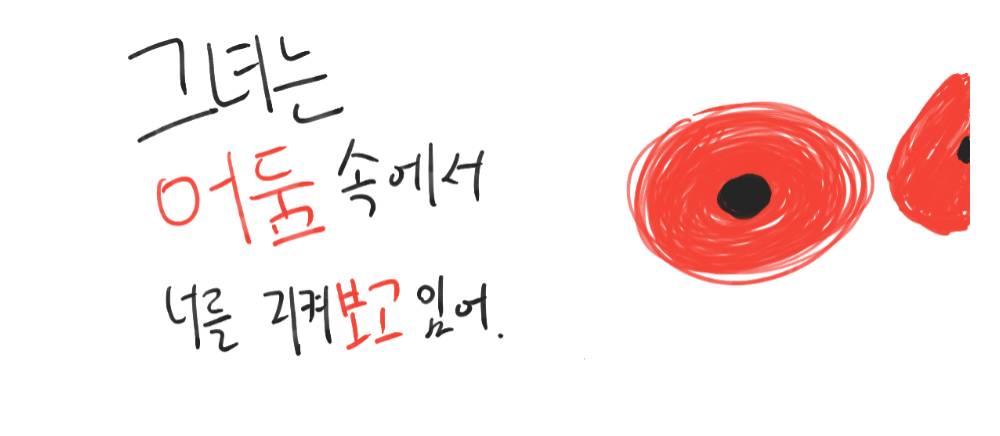 그녀는
어둠 속에서
너를 지켜보고 있어.